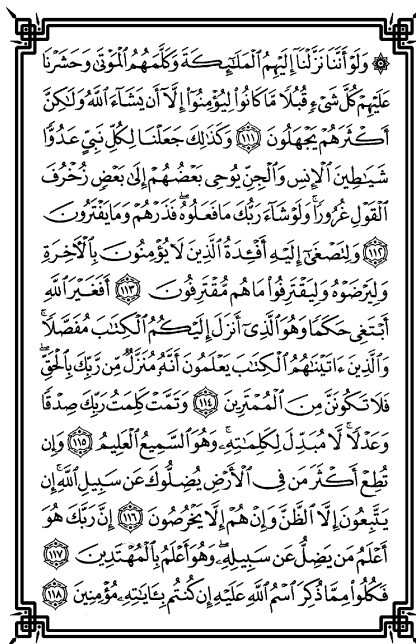 ۞ وَلَوۡ أَنَّنَا نَزَّلۡنَآ إِلَيۡهِمُ ٱلۡمَلَٰٓئِكَةَ وَكَلَّمَهُمُ ٱلۡمَوۡتَىٰ وَحَشَرۡنَا
عَلَيۡهِمۡ كُلَّ شَيۡءٖ قُبُلٗا مَّا كَانُواْ لِيُؤۡمِنُوٓاْ إِلَّآ أَن يَشَآءَ ٱللَّهُ وَلَٰكِنَّ
أَكۡثَرَهُمۡ يَجۡهَلُونَ ١١١ وَكَذَٰلِكَ جَعَلۡنَا لِكُلِّ نَبِيٍّ عَدُوّٗا
شَيَٰطِينَ ٱلۡإِنسِ وَٱلۡجِنِّ يُوحِي بَعۡضُهُمۡ إِلَىٰ بَعۡضٖ زُخۡرُفَ
ٱلۡقَوۡلِ غُرُورٗاۚ وَلَوۡ شَآءَ رَبُّكَ مَا فَعَلُوهُۖ فَذَرۡهُمۡ وَمَا يَفۡتَرُونَ
١١٢ وَلِتَصۡغَىٰٓ إِلَيۡهِ أَفۡـِٔدَةُ ٱلَّذِينَ لَا يُؤۡمِنُونَ بِٱلۡأٓخِرَةِ
وَلِيَرۡضَوۡهُ وَلِيَقۡتَرِفُواْ مَا هُم مُّقۡتَرِفُونَ ١١٣ أَفَغَيۡرَ ٱللَّهِ
أَبۡتَغِي حَكَمٗا وَهُوَ ٱلَّذِيٓ أَنزَلَ إِلَيۡكُمُ ٱلۡكِتَٰبَ مُفَصَّلٗاۚ
وَٱلَّذِينَ ءَاتَيۡنَٰهُمُ ٱلۡكِتَٰبَ يَعۡلَمُونَ أَنَّهُۥ مُنَزَّلٞ مِّن رَّبِّكَ بِٱلۡحَقِّۖ
فَلَا تَكُونَنَّ مِنَ ٱلۡمُمۡتَرِينَ ١١٤ وَتَمَّتۡ كَلِمَتُ رَبِّكَ صِدۡقٗا
وَعَدۡلٗاۚ لَّا مُبَدِّلَ لِكَلِمَٰتِهِۦۚ وَهُوَ ٱلسَّمِيعُ ٱلۡعَلِيمُ ١١٥ وَإِن
تُطِعۡ أَكۡثَرَ مَن فِي ٱلۡأَرۡضِ يُضِلُّوكَ عَن سَبِيلِ ٱللَّهِۚ إِن
يَتَّبِعُونَ إِلَّا ٱلظَّنَّ وَإِنۡ هُمۡ إِلَّا يَخۡرُصُونَ ١١٦ إِنَّ رَبَّكَ هُوَ
أَعۡلَمُ مَن يَضِلُّ عَن سَبِيلِهِۦۖ وَهُوَ أَعۡلَمُ بِٱلۡمُهۡتَدِينَ ١١٧
فَكُلُواْ مِمَّا ذُكِرَ ٱسۡمُ ٱللَّهِ عَلَيۡهِ إِن كُنتُم بِـَٔايَٰتِهِۦ مُؤۡمِنِينَ ١١٨